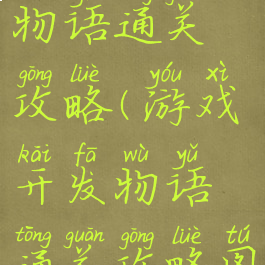 物语通关
gōng lüè yóu xì
攻略(游戏
kāi fā wù yǔ
开发物语
tōng guān gōng lüè tú
通关攻略图